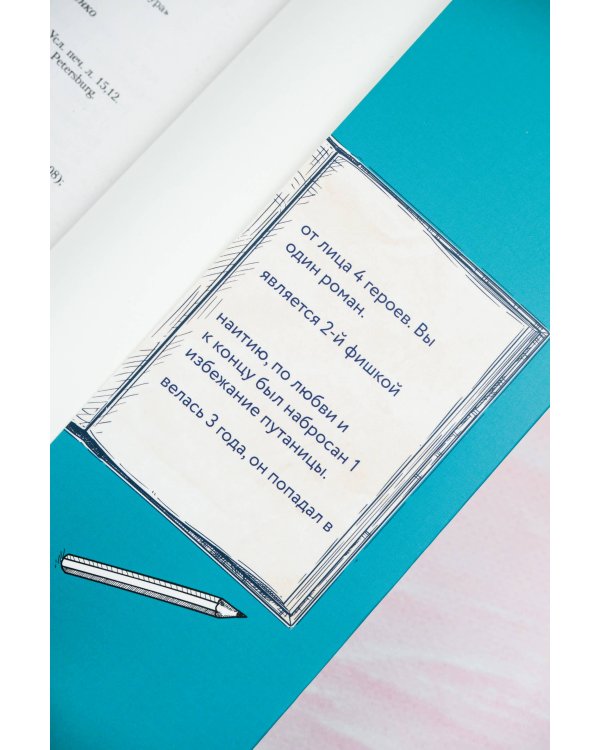 ура»
нко
Усл. печ. л. 15,12.
Petersburg.
08);
от лица 4 героев. Вы
один роман.
является 2-й фишкой
наитию, по любви и
к концу был набросан 1
избежание путаницы.
велась 3 года, он попадал в